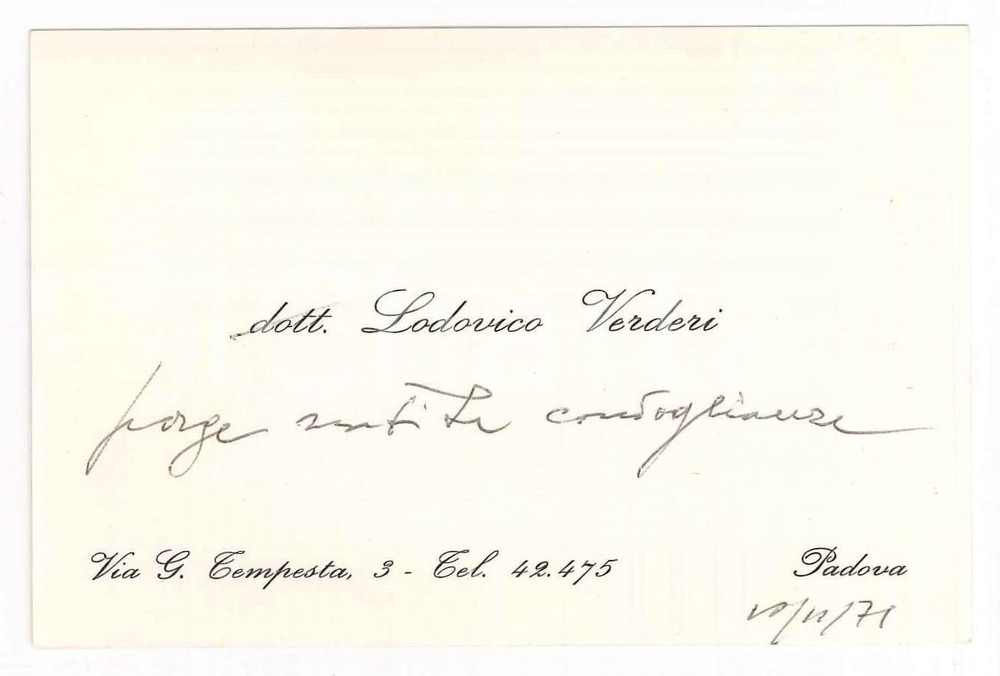 dott. Lodovico Verderi
porge sentite condoglianze
Via G. Tempesta, 3 - Tel. 42.475 Padova